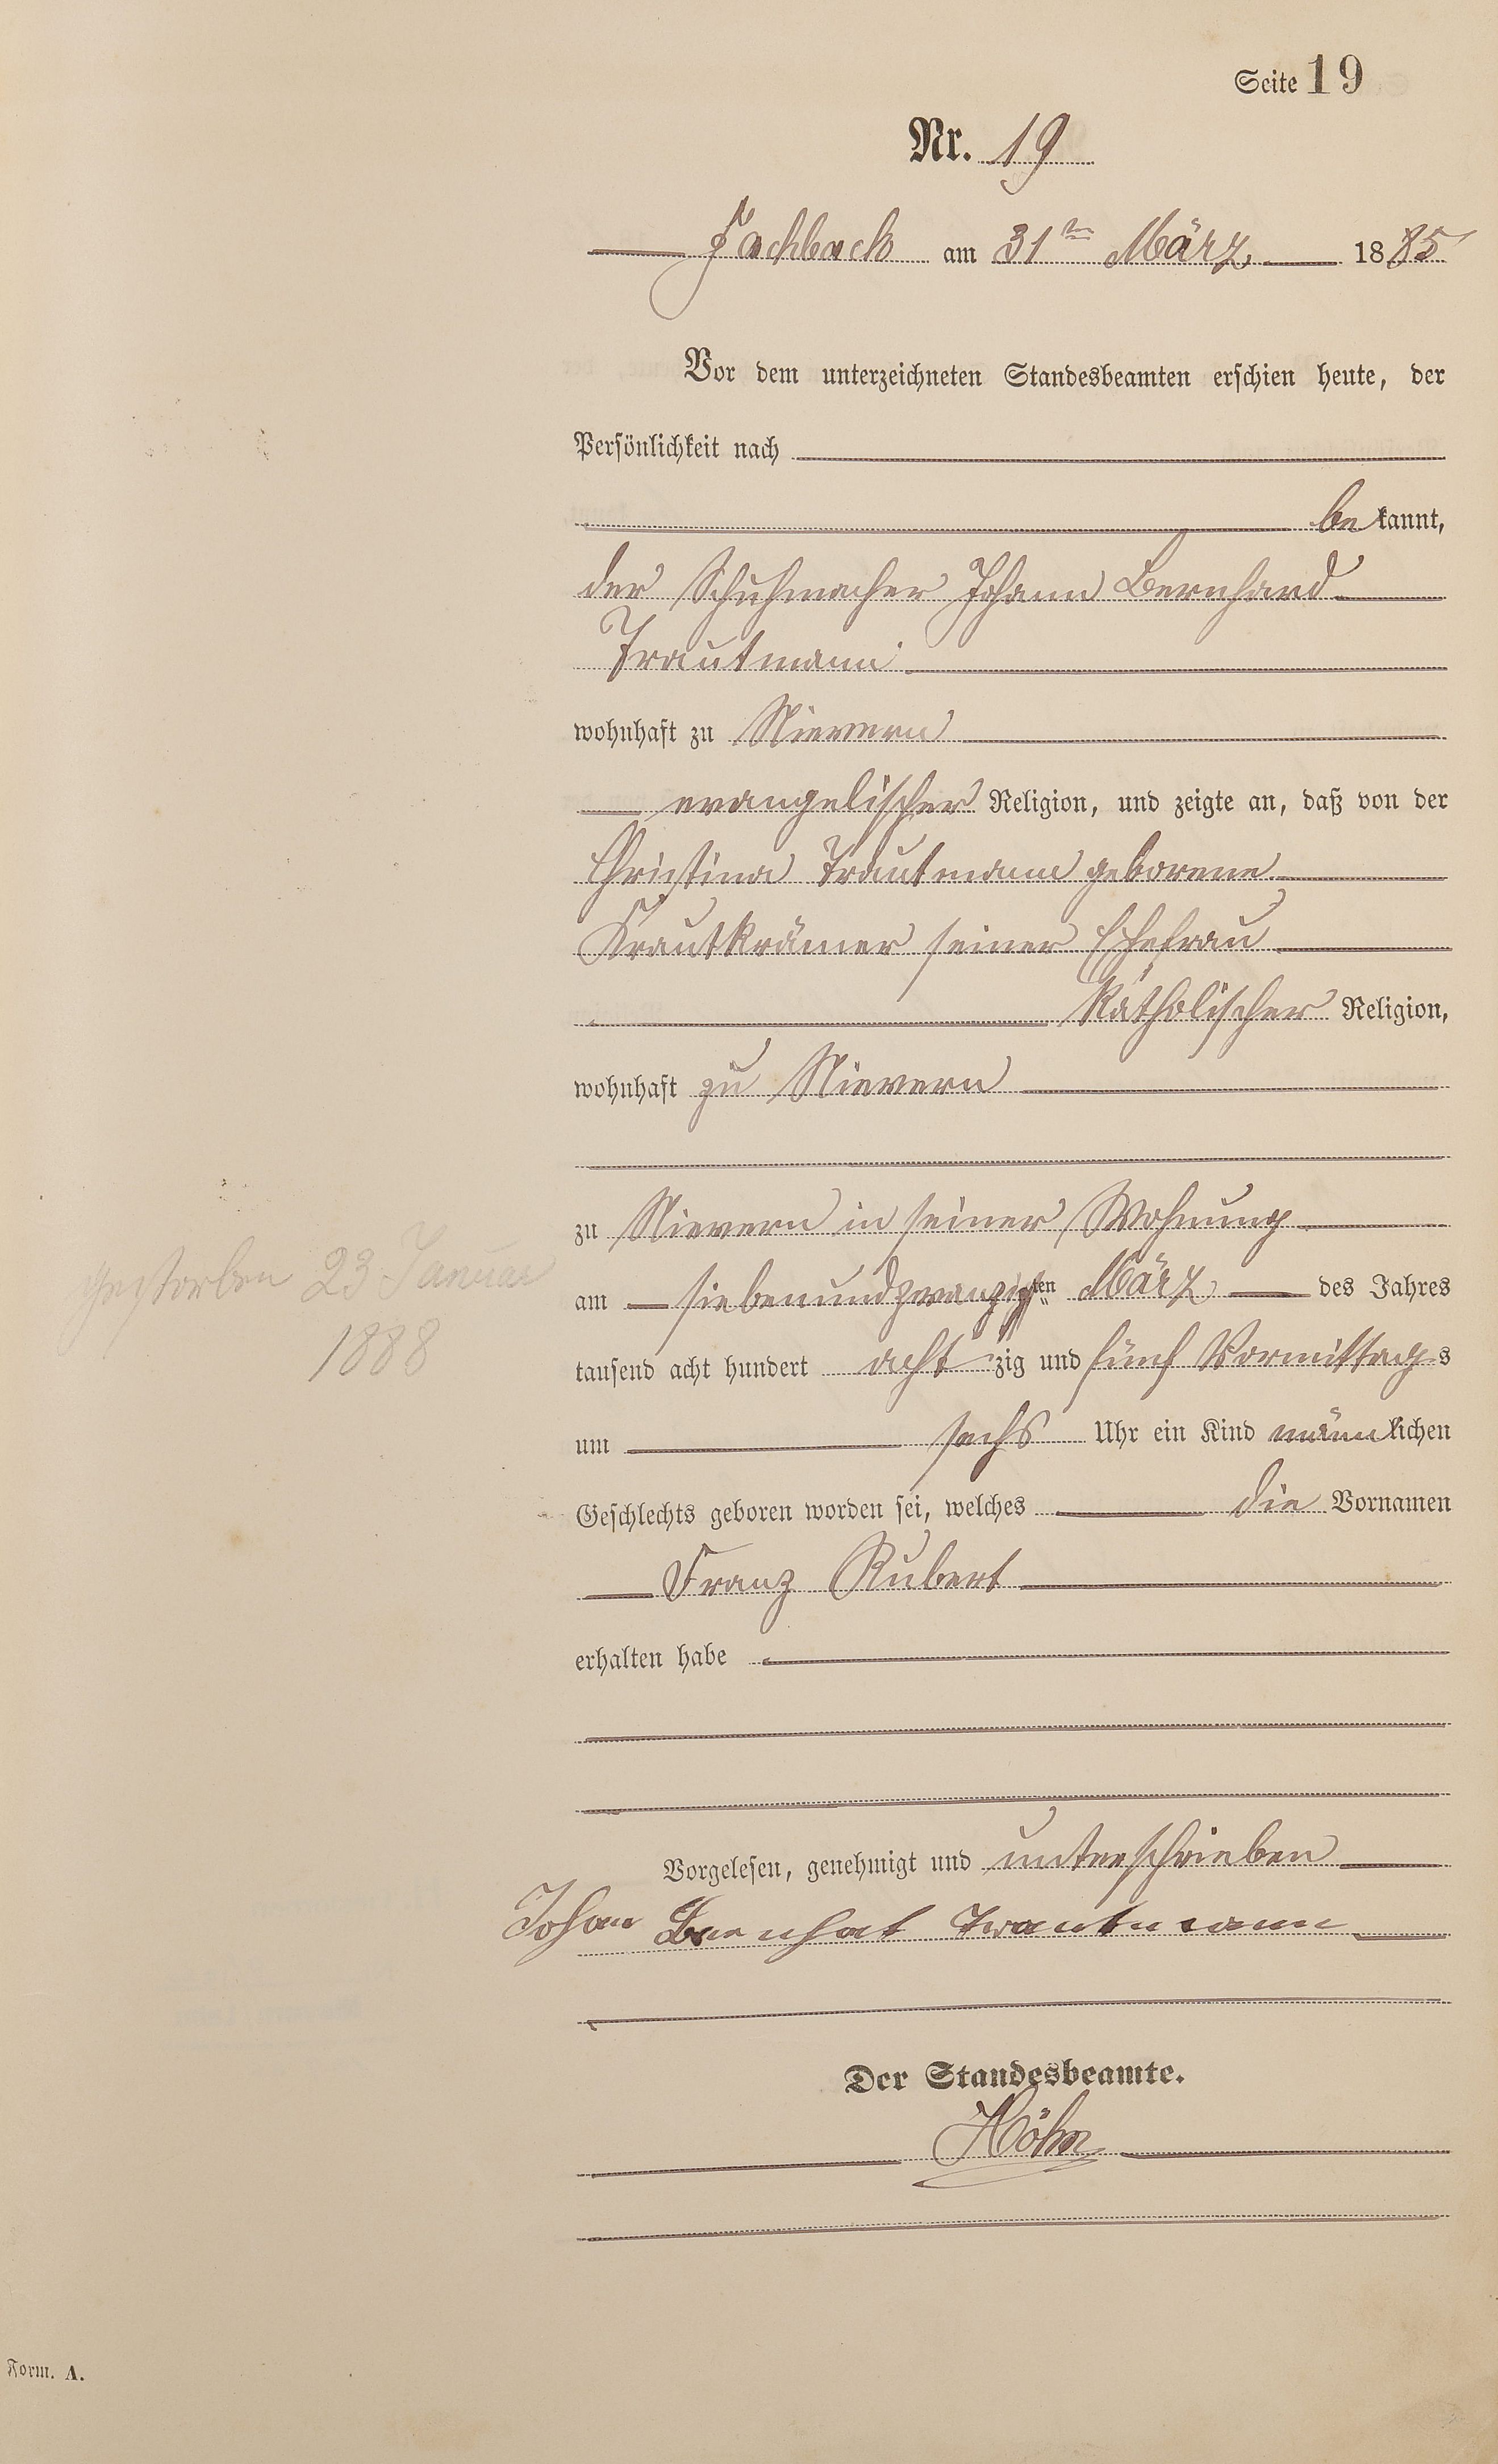 Seite 19
Nr. 19
Fachbach am 31ten März 1885
Vor dem unterzeichneten Standesbeamten erschien heute, der
Persönlichkeit nach
bekannt,
der Schuhmacher Johann Bernhard
Trautmann
wohnhaft zu Nievern
evangelischer Religion, und zeigte an, daß von der
Christina Trautmann geborene
Krautkrämer seiner Ehefrau
katholischer Religion,
wohnhaft zu Nievern
zu Nievern in seiner Wohnung
am siebenundzwanzigsten März des Jahres
tausend acht hundert achtzig und fünf Vormittags
um sechs Uhr ein Kind männlichen
Geschlechts geboren worden sei, welches die Vornamen
Franz Rubert
erhalten habe
gestorben 23 Januar
1888
Vorgelesen, genehmigt und unterschrieben
Johan Bernhat Trautmann
Der Standesbeamte.
Höhn
Form. A.